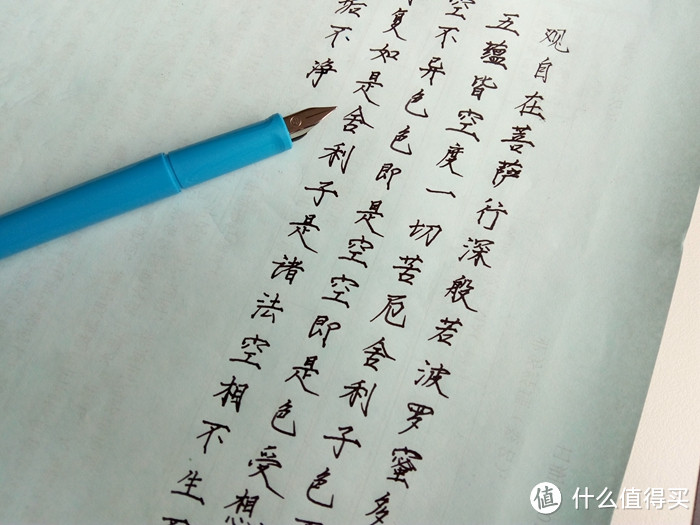 观自在菩萨行深般若波罗蜜多
五蕴皆空度一切苦厄舍利子色
空不异色色即是空空即是色受想
复如是舍利子是诸法空相不生
垢不净
值 什么值得买